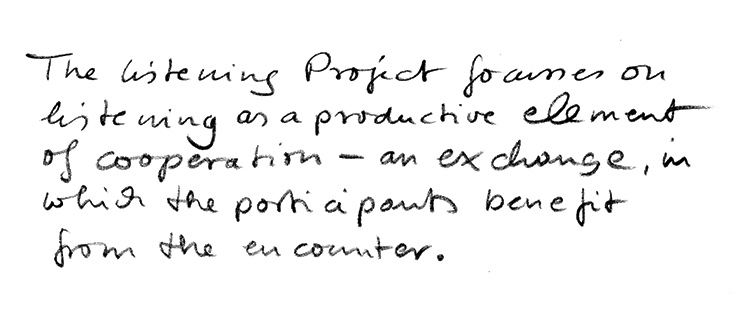 The listening Project focusses on
listening as a productive element
of cooperation – an exchange, in
which the participants benefit
from the encounter.